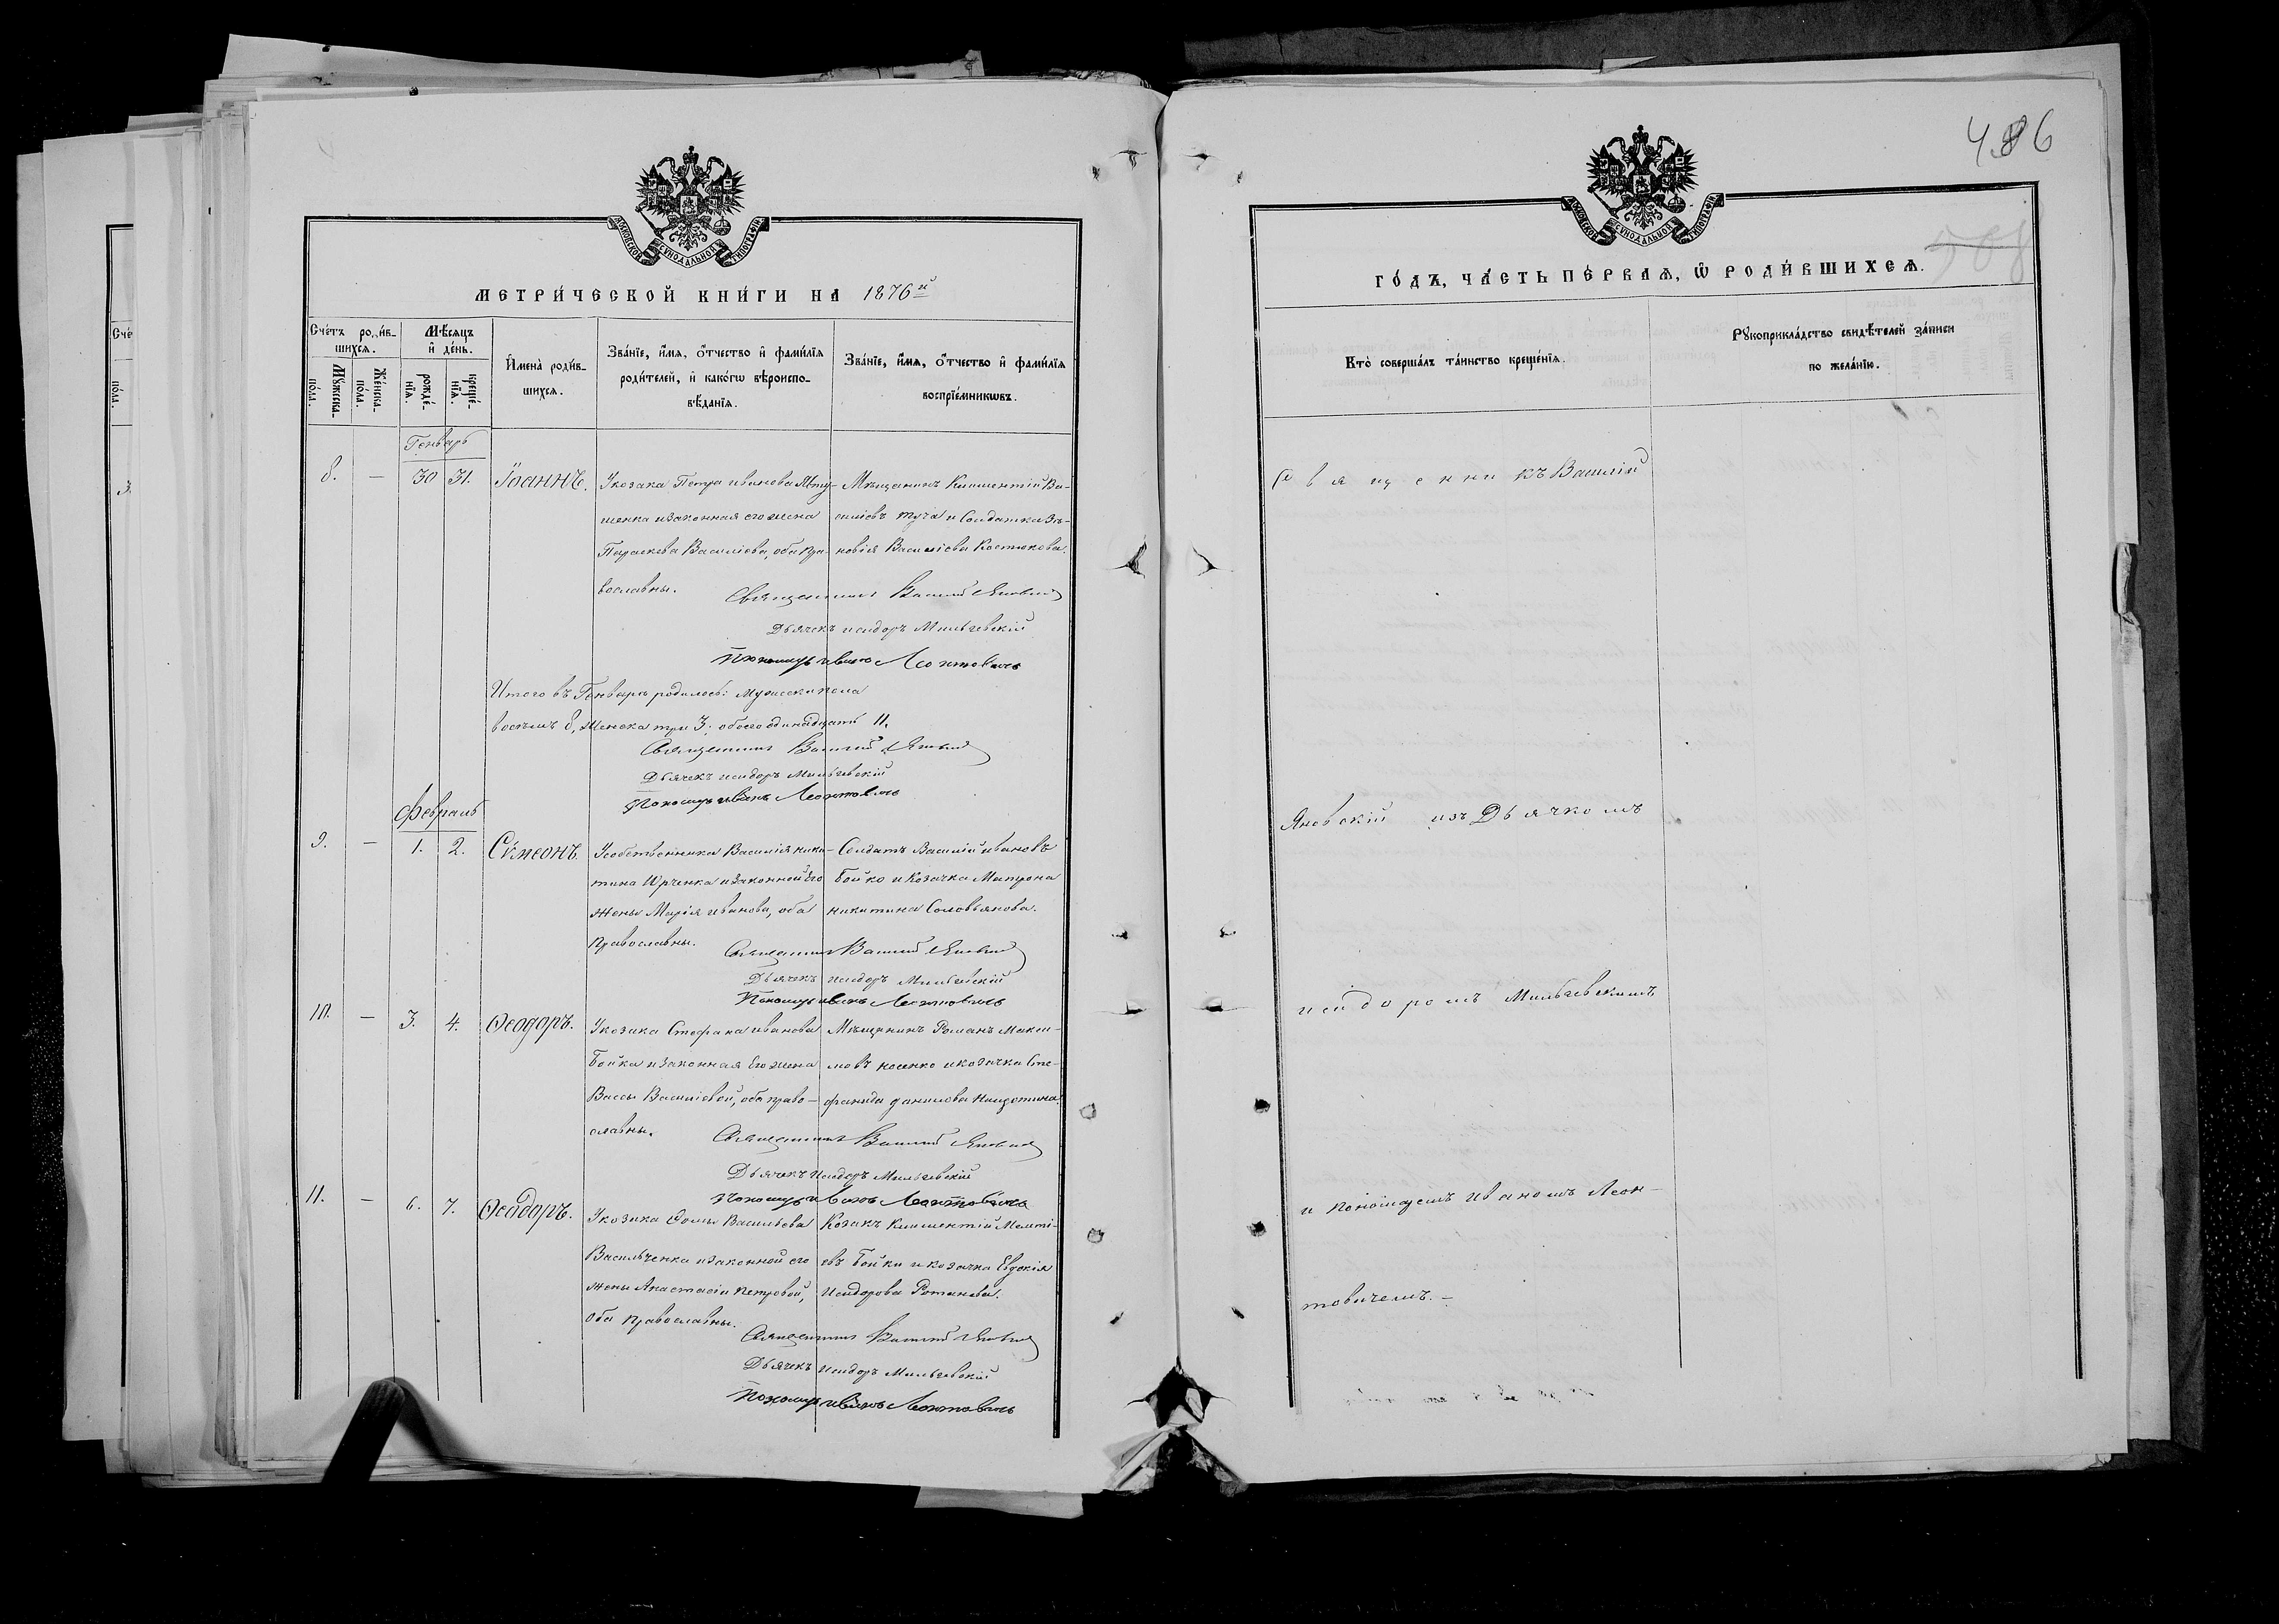 МОСКОВСКОЙ СУНОДАЛЬНОЙ ТИПОГРАФІИ
МЕТРИ́ЧЕСКОЙ КНИ́ГИ НА 1876й
Сче́тъ роди́в-
шихся.
Мѣ́сяцъ
и҆ де́нь.
Мꙋ́жеска-
по́ла.
Же́нска-
по́ла.
рожде́-
нїѧ.
креще́-
нїѧ.
И҆мена̀ роди́в-
шихсѧ.
Зва́нїе, и҆́мѧ, ѻ҆́тчество и҆ фами́лїѧ
роди́телей, и҆ како́гѡ вѣроиспо-
вѣ́данїѧ.
Зва́нїе, и҆́мѧ, ѻ҆́тчество и҆ фами́лїѧ
воспрїе́мникѡвъ.
Генварь
8. — 30 31. Іоаннъ.
Укозака Петра иванова Яту-
шенка изаконная его жена
Параскева Василіева, оба пра-
вославны.
Мѣщанинъ Климентій Ва-
силіевъ Туча и Солдатка Зѣ-
новія Василіева Костюкова.
Священникъ Василій Яновскій
Дьячекъ исидоръ Мильчевскій
Пономарь иванъ Леонтовичь
Итого въ Генварѣ родилось: Мужеска пола
восѣмь 8, Женска три 3; обоего одинадцать 11.
Священникъ Василій Яновскій
Дьячекъ исидоръ Мильчевскій
Пономарь иванъ Леонтовичь
Февраль
9. — 1. 2. Сѵмеонъ.
Усобственника Василія ники-
тина Юрченка изаконной его
жены Марія иванова, оба
православны.
Солдатъ Василій ивановъ
Бойко и Козачка Матрона
никитина Соловьянова.
Священникъ Василій Яновскій
Дьячекъ исидоръ Мильчевскій
Пономарь иванъ Леонтовичь
10. — 3. 4. Ѳеодоръ.
Укозака Стефана иванова
Бойка изаконная его жена
Вассы Василіевой, оба право-
славны.
Мѣщанинъ Романъ Макси-
мовъ носенко икозачка Сте-
фанида данилова
Священникъ Василій Яновскій
Дьячекъ Исидоръ Мильчевскій
Пономарь иванъ Леонтовичь
11. — 6. 7. Ѳеодоръ.
Укозака Ѳомы Васильева
Васильченка изаконной его
жены Анастасіи петровой,
оба православны.
Козакъ Климентій
евъ Бойки икозачка Евдокія
Исидорова Ротанева.
Священникъ Василій Яновскій
Дьячекъ исидоръ Мильчевскій
Пономарь иванъ Леонтовичь
486
508
МОСКОВСКОЙ СУНОДАЛЬНОЙ ТИПОГРАФІИ
ГО́ДЪ, ЧА́СТЬ ПЕ́РВАѦ, Ѡ҆ РОДИ́ВШИХСѦ.
Кто̀ соверша́лъ та́инство креще́нїѧ.
Рꙋкоприкла́дство свидѣ́телей за́писи
по жела́нїю.
Священникъ Василій
Яновскій изъ Дьячкомъ
исидоромъ Мильчевскимъ
и пономаремъ Иваномъ Леон-
товичемъ. —